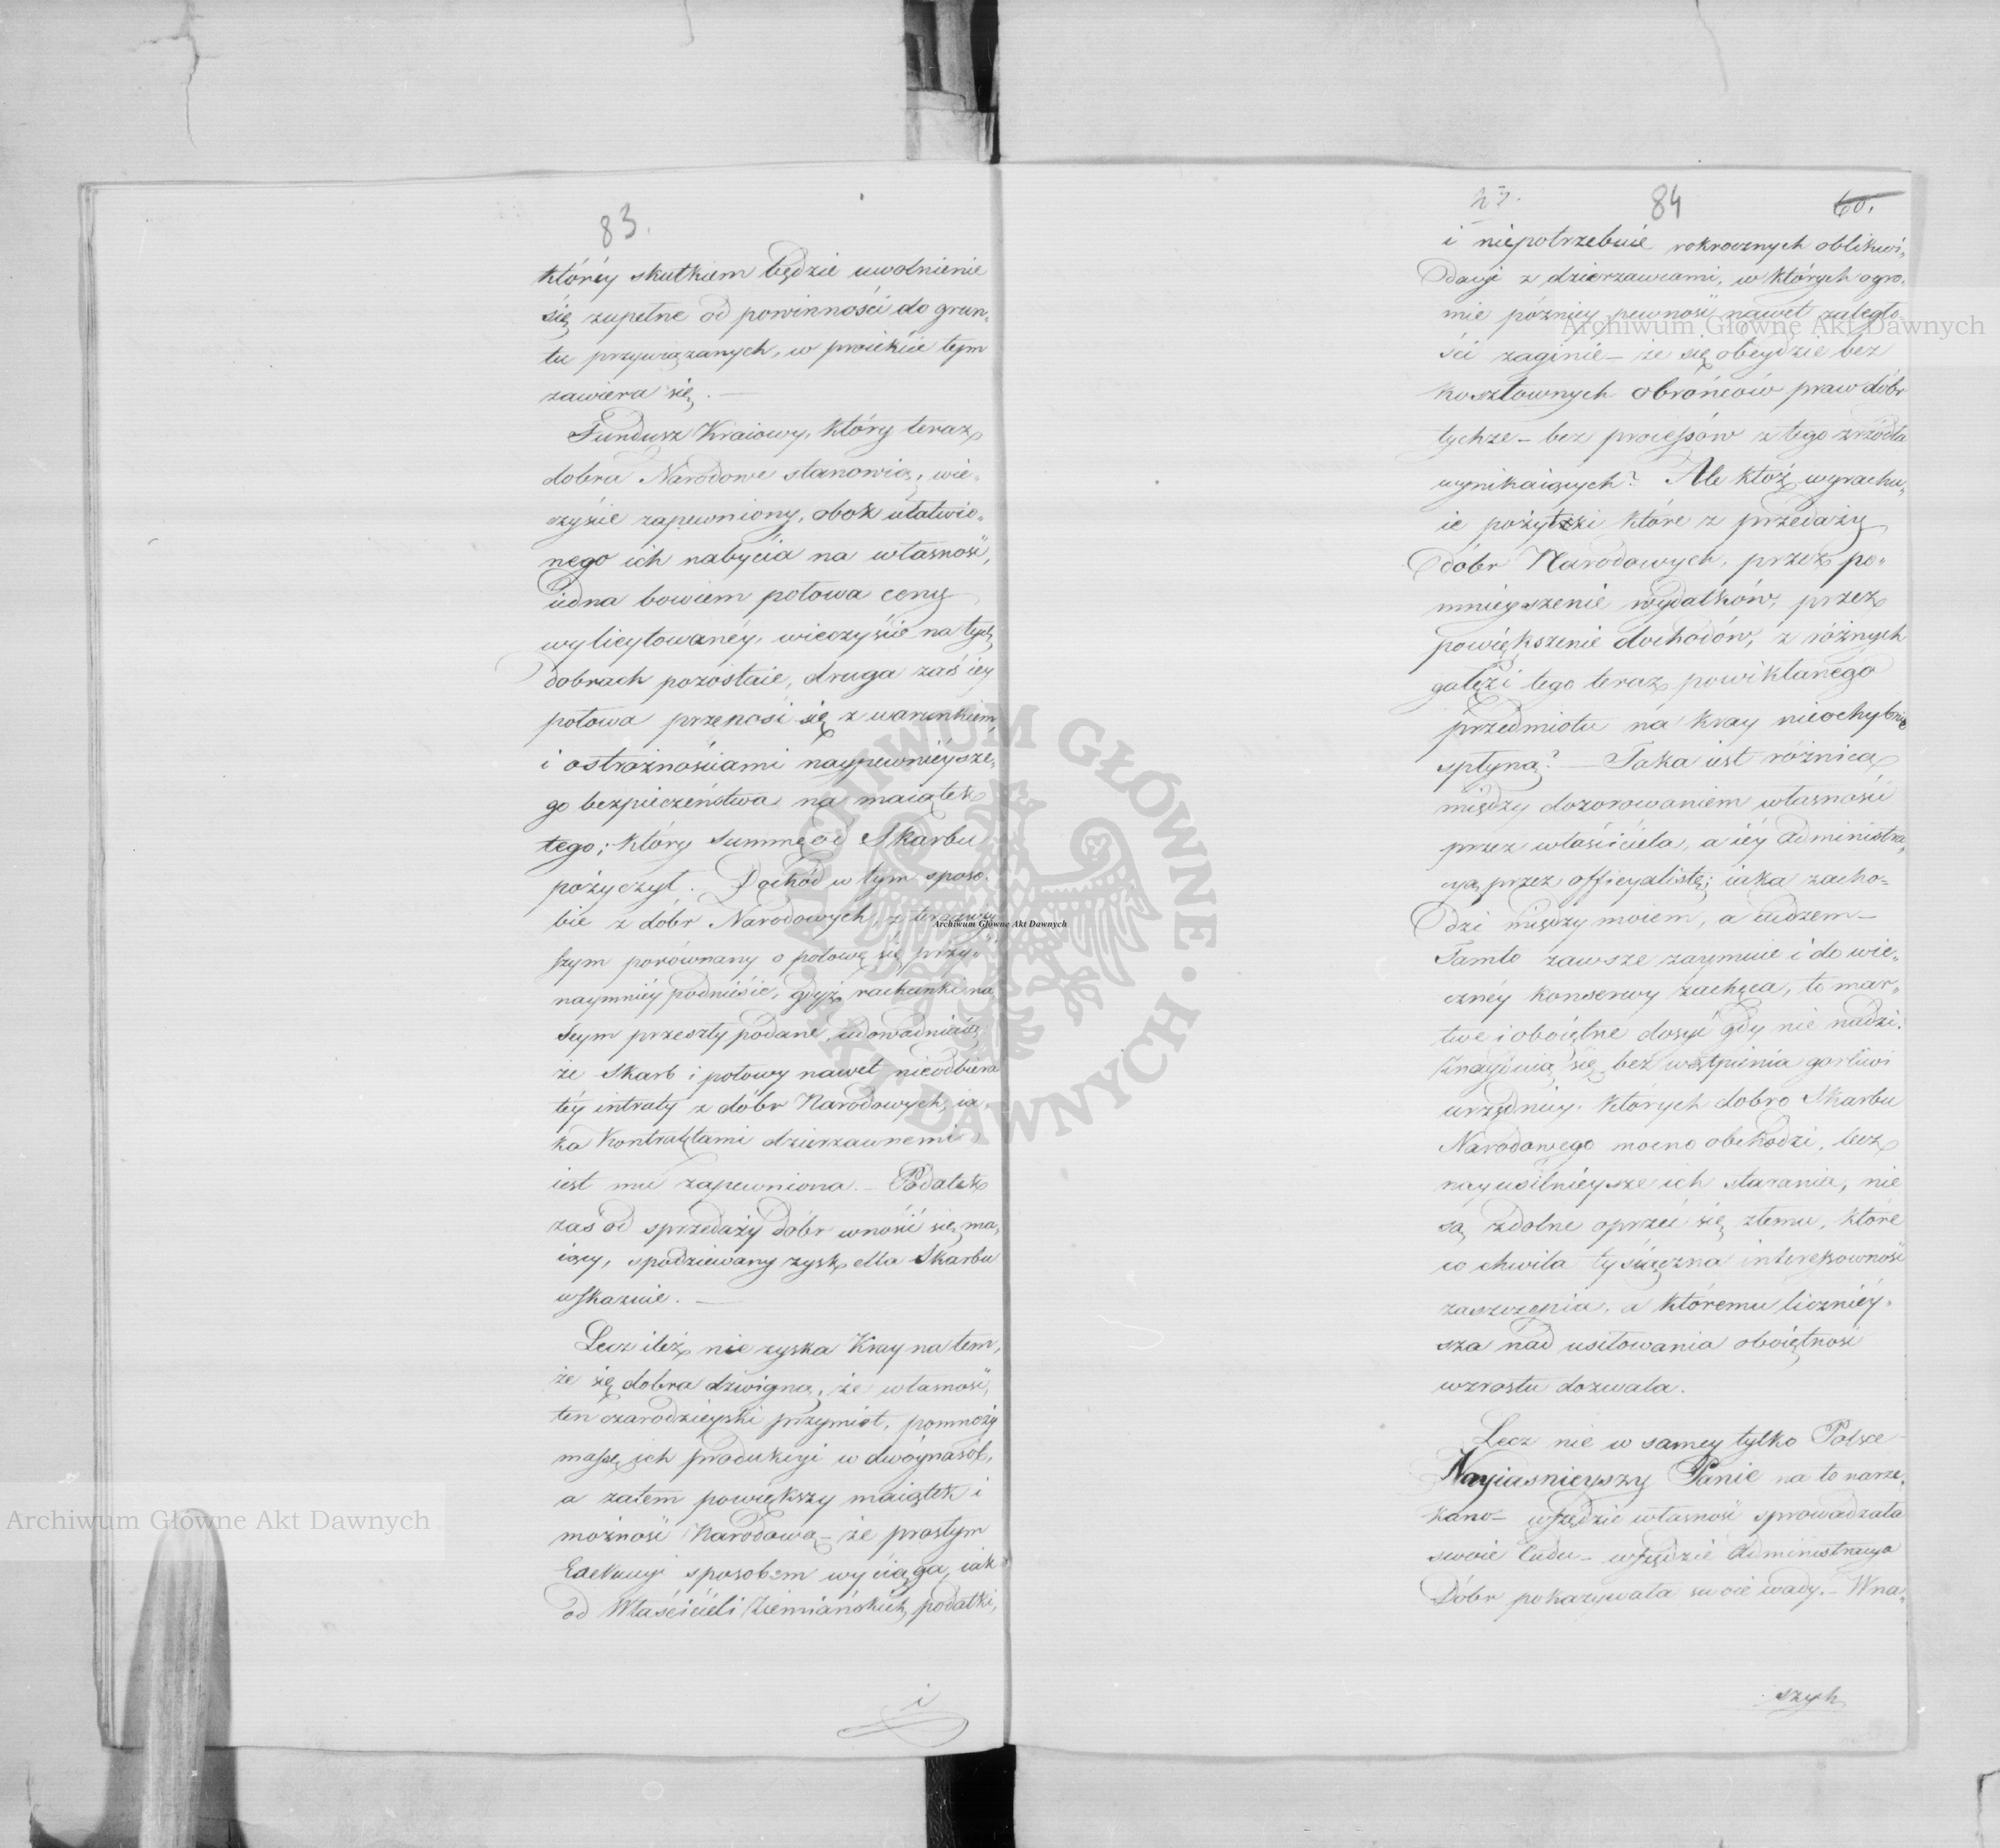 83.
któréy skutkiem będzie uwolnienie
się zupełne od powinności do grun-
tu przywiązanych, w proiekcie tym
zawiera się. —
Fundusz Kraiowy, który teraz
dobra Narodowe stanowią, wie-
czyście zapewniony, obok ułatwio-
nego ich nabycia na własność,
iedna bowiem połowa ceny
wylicytowanéy, wieczyście na tych
dobrach pozostaie, druga zaś iey
połowa przenosi się z warunkiem
i ostrożnościami naypewnieysze-
go bezpieczeństwa na maiątek
tego; który summę od Skarbu
pożyczył. Dochód w tym sposo-
bie z dóbr Narodowych, z teraźniey-
szym porównany o połowę się przy-
naymniéy podniesie, gdyż rachunki na
Seym przeszły podane, udowadniaią
że Skarb i połowy nawet nieodbiera
téy intraty z dóbr Narodowych, ia-
ka Kontraktami dzierżawnemi
iest mu zapewniona. — Podatek
zaś od sprzedaży dóbr wnosić się ma-
iący, spodziewany zysk dla Skarbu
wskazuie. —
Lecz ileż nie zyska Kray na tem,
że się dobra dzwigną, że własność,
ten czarodzieyski przymiot, pomnoży
massę ich produkcyi w dwóynasób,
a zatem powiększy maiątek i
możność Narodową — że prostym
Exekucyi sposobem wyciąga, iak
od Właścicieli Ziemiańskich, podatki,
i
27.
84
60.
i niepotrzebuie rokrocznych oblikwi-
dacyi z dzierzawcami, w których ogro-
mie późniey pewność nawet zaległo-
ści zaginie — że się obeydzie bez
kosztownych obrońców praw dóbr
tychże — bez processów z tego zrzódła
wynikaiących? Ale któż wyrachu-
ie pożytki które z przedaży
dóbr Narodowych, przez po-
mnieyszenie wydatków, przez
powiększenie dochodów, z różnych
gałęzi tego teraz powikłanego
przedmiotu na kray nieochybnie
spłyną? — Taka iest różnica
między dozorowaniem własności
przez właściciela, a iéy administra-
cyą przez officyalistę; iaka zacho-
dzi między moiem, a cudzem —
Tamto zawsze zaymuie i do wie-
cznéy konserwy zachęca, to mar-
twe i oboiętne dosyć gdy nie nudzi.
Znaydują się bez wątpienia gorliwi
urzędnicy, których dobro Skarbu
Narodowego mocno obchodzi, lecz
nayusilnieysze ich starania, nie
są zdolne oprzeć się złemu, które
co chwila tysiączna interessowność
zaszczepia, a któremu licznéy-
sza nad usiłowania oboiętność
wzrostu dozwala.
Lecz nie w samey tylko Polsce
Nayiaśnieyszy Panie na to narze-
kano — wszędzie własność sprowadzała
swoie cuda — wszędzie Administracya
Dóbr pokazywała swoie wady. — W na-
szych
Archiwum Główne Akt Dawnych
Archiwum Główne Akt Dawnych
Archiwum Główne Akt Dawnych
ARCHIWUM GŁÓWNE • AKT DAWNYCH •